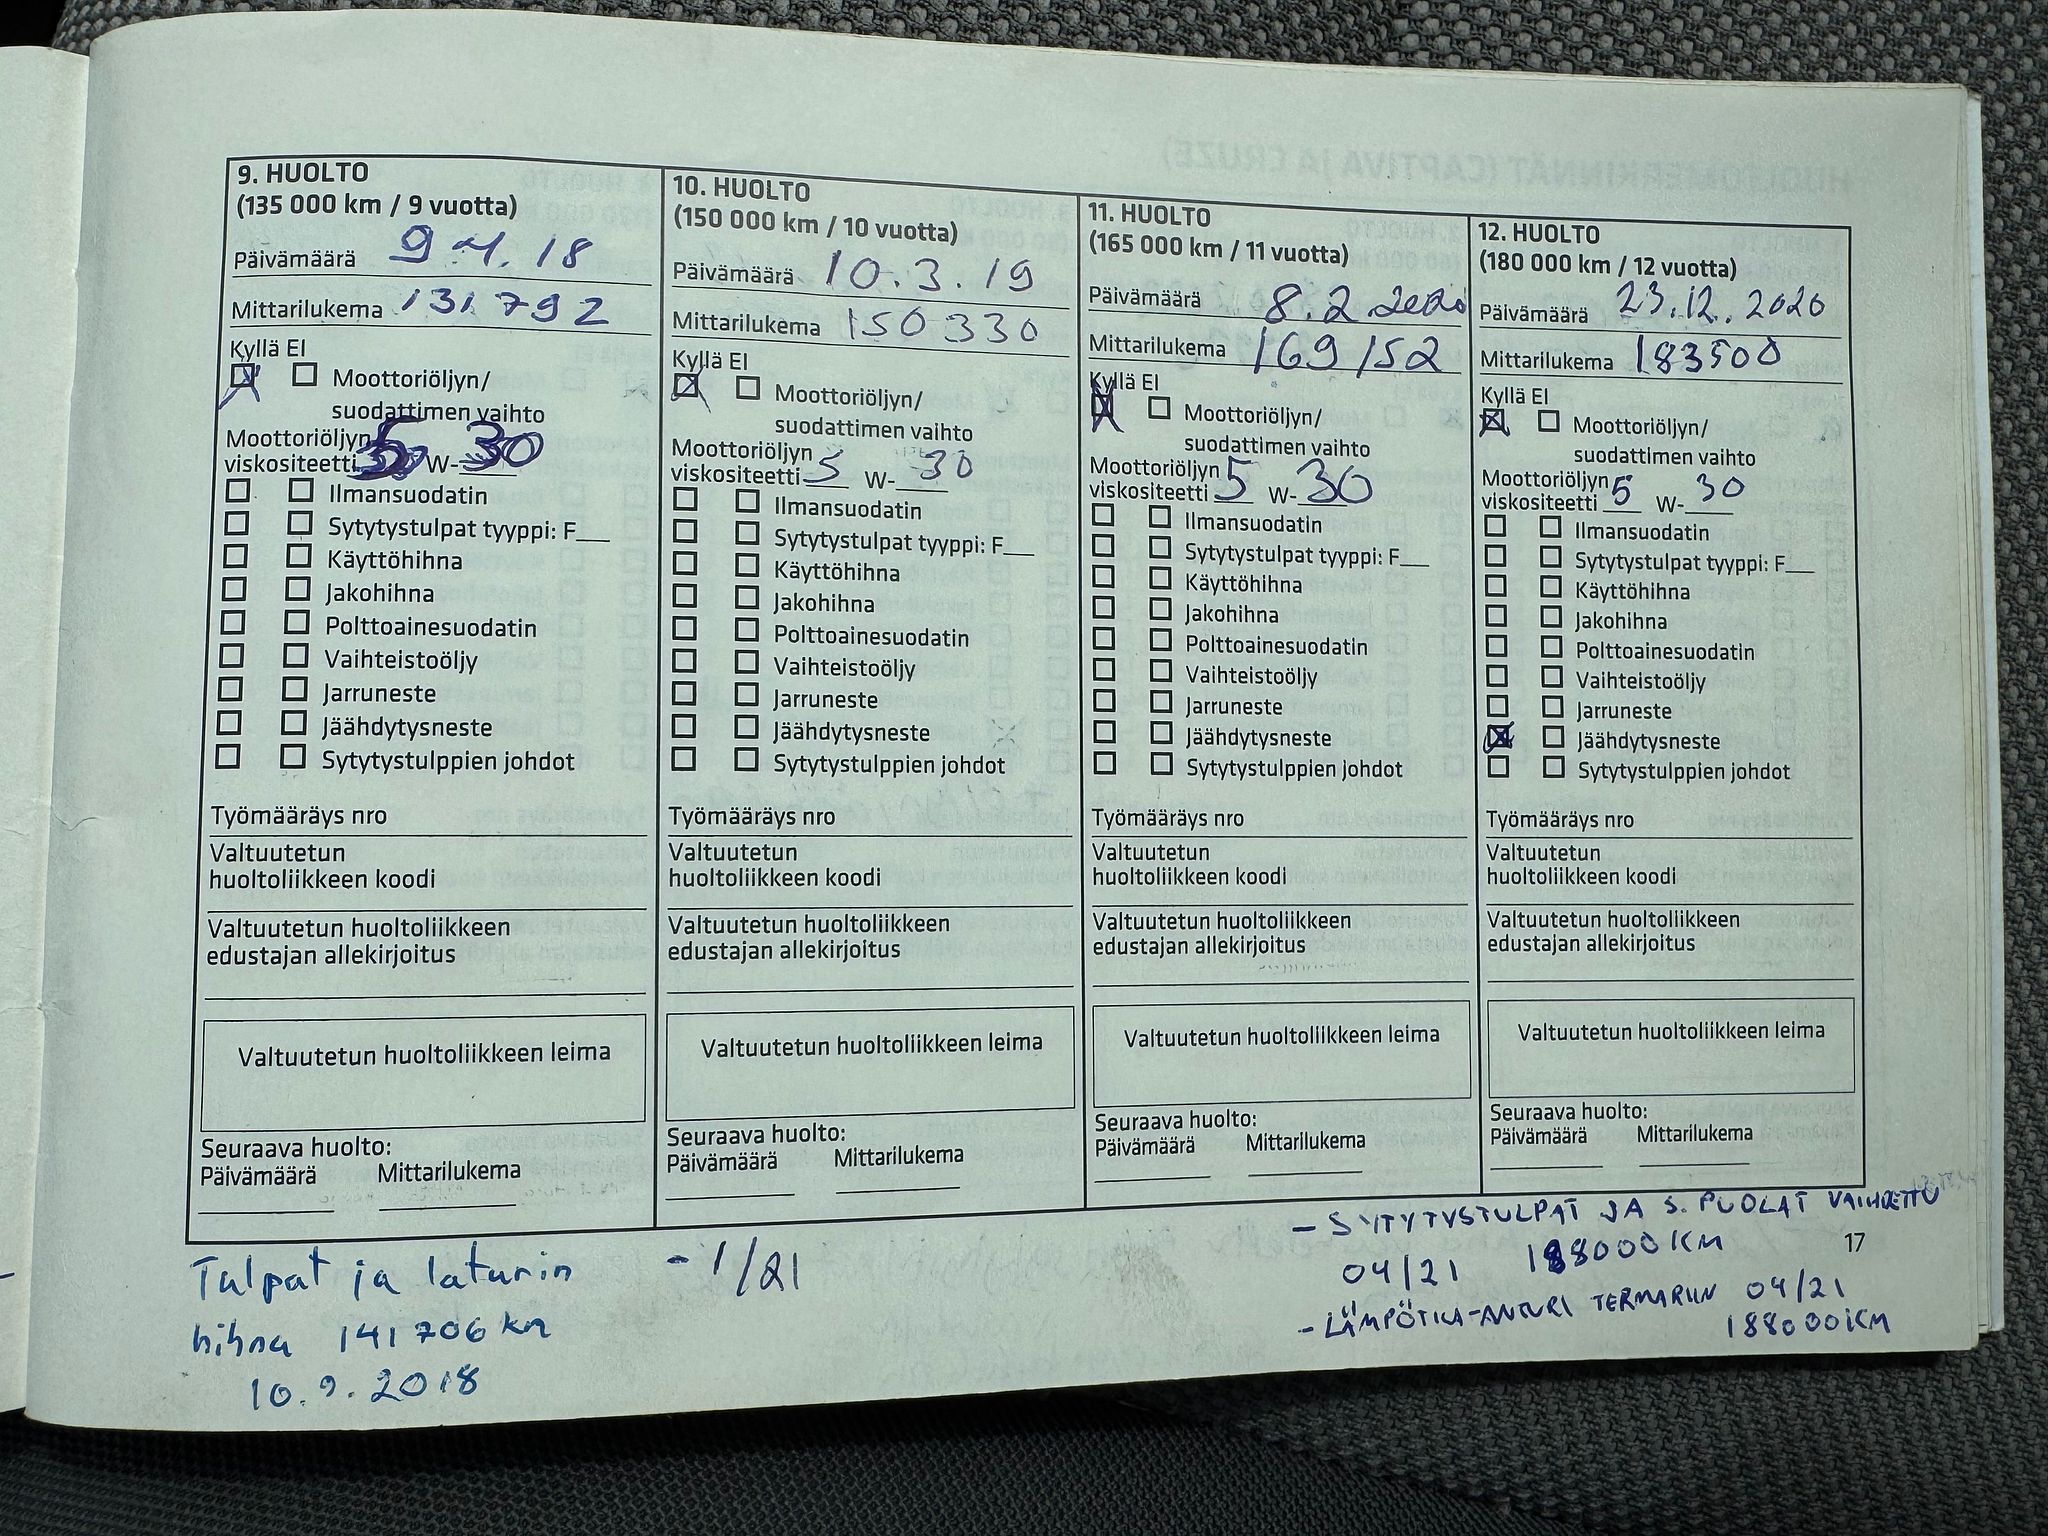 9. HUOLTO
(135 000 km / 9 vuotta)
Päivämäärä 9.4.18
Mittarilukema 131792
Kyllä EI
Moottoriöljyn/
suodattimen vaihto
Moottoriöljyn
viskositeetti 5 W-30
Ilmansuodatin
Sytytystulpat tyyppi: F__
Käyttöhihna
Jakohihna
Polttoainesuodatin
Vaihteistoöljy
Jarruneste
Jäähdytysneste
Sytytystulppien johdot
Työmääräys nro
Valtuutetun
huoltoliikkeen koodi
Valtuutetun huoltoliikkeen
edustajan allekirjoitus
Valtuutetun huoltoliikkeen leima
Seuraava huolto:
Päivämäärä Mittarilukema
10. HUOLTO
(150 000 km / 10 vuotta)
Päivämäärä 10.3.19
Mittarilukema 150330
Kyllä EI
Moottoriöljyn/
suodattimen vaihto
Moottoriöljyn
viskositeetti 5 W-30
Ilmansuodatin
Sytytystulpat tyyppi: F__
Käyttöhihna
Jakohihna
Polttoainesuodatin
Vaihteistoöljy
Jarruneste
Jäähdytysneste
Sytytystulppien johdot
Työmääräys nro
Valtuutetun
huoltoliikkeen koodi
Valtuutetun huoltoliikkeen
edustajan allekirjoitus
Valtuutetun huoltoliikkeen leima
Seuraava huolto:
Päivämäärä Mittarilukema
11. HUOLTO
(165 000 km / 11 vuotta)
Päivämäärä 8.2.2020
Mittarilukema 169152
Kyllä EI
Moottoriöljyn/
suodattimen vaihto
Moottoriöljyn
viskositeetti 5 W-30
Ilmansuodatin
Sytytystulpat tyyppi: F__
Käyttöhihna
Jakohihna
Polttoainesuodatin
Vaihteistoöljy
Jarruneste
Jäähdytysneste
Sytytystulppien johdot
Työmääräys nro
Valtuutetun
huoltoliikkeen koodi
Valtuutetun huoltoliikkeen
edustajan allekirjoitus
Valtuutetun huoltoliikkeen leima
Seuraava huolto:
Päivämäärä Mittarilukema
12. HUOLTO
(180 000 km / 12 vuotta)
Päivämäärä 23.12.2020
Mittarilukema 183500
Kyllä EI
Moottoriöljyn/
suodattimen vaihto
Moottoriöljyn
viskositeetti 5 W-30
Ilmansuodatin
Sytytystulpat tyyppi: F__
Käyttöhihna
Jakohihna
Polttoainesuodatin
Vaihteistoöljy
Jarruneste
Jäähdytysneste
Sytytystulppien johdot
Työmääräys nro
Valtuutetun
huoltoliikkeen koodi
Valtuutetun huoltoliikkeen
edustajan allekirjoitus
Valtuutetun huoltoliikkeen leima
Seuraava huolto:
Päivämäärä Mittarilukema
Tulpat ja laturin - 1/21
hihna 141706 km
10.9.2018
- SYTYTYSTULPAT JA S. PUOLAT VAIHDETTU
04/21 188000 KM
- LÄMPÖTILA-ANTURI TERMARIIN 04/21
188000 KM
17